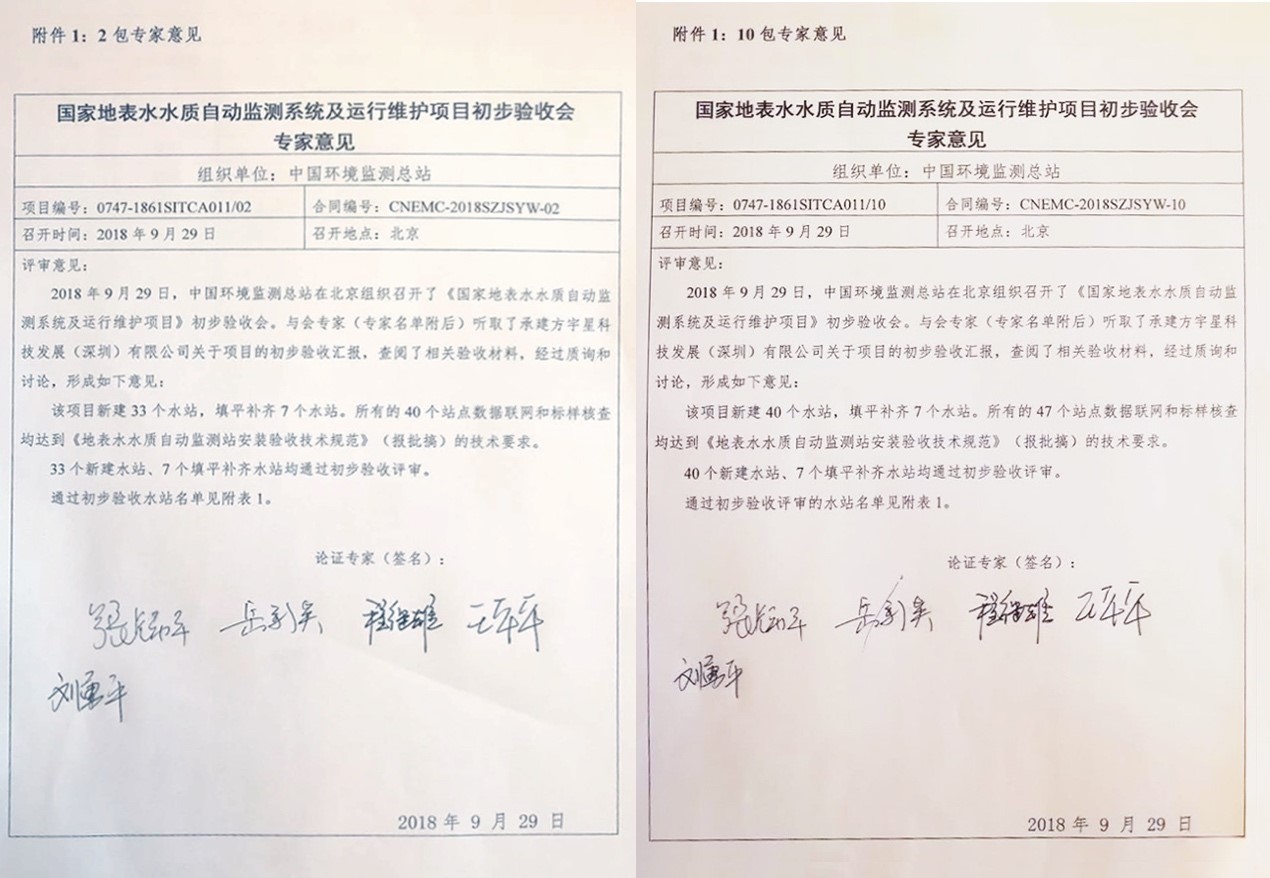 附件 1：2 包专家意见
国家地表水水质自动监测系统及运行维护项目初步验收会
专家意见
组织单位：中国环境监测总站
项目编号：0747-1861SITCA011/02
合同编号：CNEMC-2018SZJSYW-02
召开时间：2018 年 9 月 29 日
召开地点：北京
评审意见：
2018 年 9 月 29 日，中国环境监测总站在北京组织召开了《国家地表水水质自动监
测系统及运行维护项目》初步验收会。与会专家（专家名单附后）听取了承建方宇星科
技发展（深圳）有限公司关于项目的初步验收汇报，查阅了相关验收材料，经过质询和
讨论，形成如下意见：
该项目新建 33 个水站，填平补齐 7 个水站。所有的 40 个站点数据联网和标样核查
均达到《地表水水质自动监测站安装验收技术规范》（报批搞）的技术要求。
33 个新建水站、7 个填平补齐水站均通过初步验收评审。
通过初步验收水站名单见附表 1。
论证专家（签名）：
程继雄 王军平
刘勇平
2018 年 9 月 29 日
附件 1：10 包专家意见
国家地表水水质自动监测系统及运行维护项目初步验收会
专家意见
组织单位：中国环境监测总站
项目编号：0747-1861SITCA011/10
合同编号：CNEMC-2018SZJSYW-10
召开时间：2018 年 9 月 29 日
召开地点：北京
评审意见：
2018 年 9 月 29 日，中国环境监测总站在北京组织召开了《国家地表水水质自动监
测系统及运行维护项目》初步验收会。与会专家（专家名单附后）听取了承建方宇星科
技发展（深圳）有限公司关于项目的初步验收汇报，查阅了相关验收材料，经过质询和
讨论，形成如下意见：
该项目新建 40 个水站，填平补齐 7 个水站。所有的 47 个站点数据联网和标样核查
均达到《地表水水质自动监测站安装验收技术规范》（报批搞）的技术要求。
40 个新建水站、7 个填平补齐水站均通过初步验收评审。
通过初步验收评审的水站名单见附表 1。
论证专家（签名）：
程继雄 王军平
刘勇平
2018 年 9 月 29 日